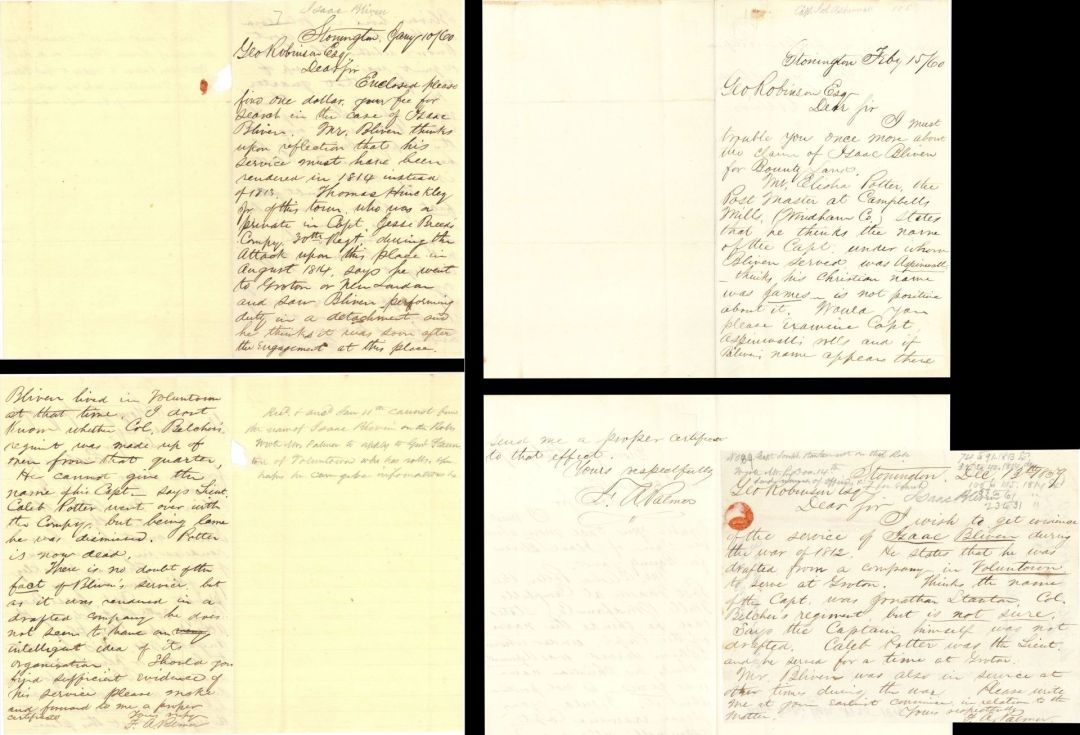 Isaac Bliven
Stonington, Jany 10/60
Geo Robinson Esq
Dear Sir
Enclosed please
find one dollar, your fee for
search in the case of Isaac
Bliven. Mr. Bliven thinks
upon reflection that his
service must have been
rendered in 1814 instead
of 1813. Thomas Hinckley
Jr. of this town, who was a
private in Capt. Jesse Breeds
Compy. 30th Regt. during the
Attack upon this place in
August 1814, says he went
to Groton or New London
and saw Bliven performing
duty in a detachment and
he thinks it was soon after
the Engagement at this place.
Bliven lived in Voluntown
at that time. I dont
know whether Col. Belcher's
regimt was made up of
men from that quarter.
He cannot give the
name of his Capt - says Lieut.
Caleb Potter went over with
the Compy, but being lame
he was dismissed. Potter
is now dead.
There is no doubt of the
fact of Bliven's service, but
as it was rendered in a
drafted company he does
not seem to have an
intelligent idea of its
organisation. Should you
find sufficient evidence of
his service please make
and forward to me a proper
certificate
Yours truly
F. A. Palmer
Recd. & ansd Jan 11th cannot find
the name of Isaac Bliven on the Rolls
Wrote Mr Palmer to apply to Genl
of Voluntown who has rolls
haps he can give information
Stonington Feby 15/60
Geo Robinson Esq
Dear Sir
I must
trouble you once more about
the claim of Isaac Bliven
for Bounty Land.
Mr. Elisha Potter, the
Post Master at Campbells
Mill, (Windham Co.) states
that he thinks the name
of the Capt. under whom
Bliven served was Aspinwall
- thinks his Christian name
was James - is not positive
about it. Would you
please examine Capt.
Aspinwall's rolls and if
Bliven's name appears there
send me a proper certificate
to that effect.
Yours respectfully
F. A. Palmer
Stonington. Dec. 13th 1859
Geo Robinson Esq
Isaac Bliven
Dear Sir
I wish to get evidence
of the service of Isaac Bliven during
the war of 1812. He states that he was
drafted from a company in Voluntown
to serve at Groton. Thinks the name
of the Capt. was Jonathan Stanton, Col.
Belcher's regiment, but is not sure.
Says the Captain himself was not
drafted. Caleb Potter was the Lieut.
and he served for a time at Groton.
Mr. Bliven was also in service at
other times during the war. Please write
me at your earliest convenience in relation to the
matter.
Yours respectfully
F. A. Palmer